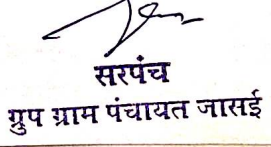 सरपंच
ग्रुप ग्राम पंचायत जासई